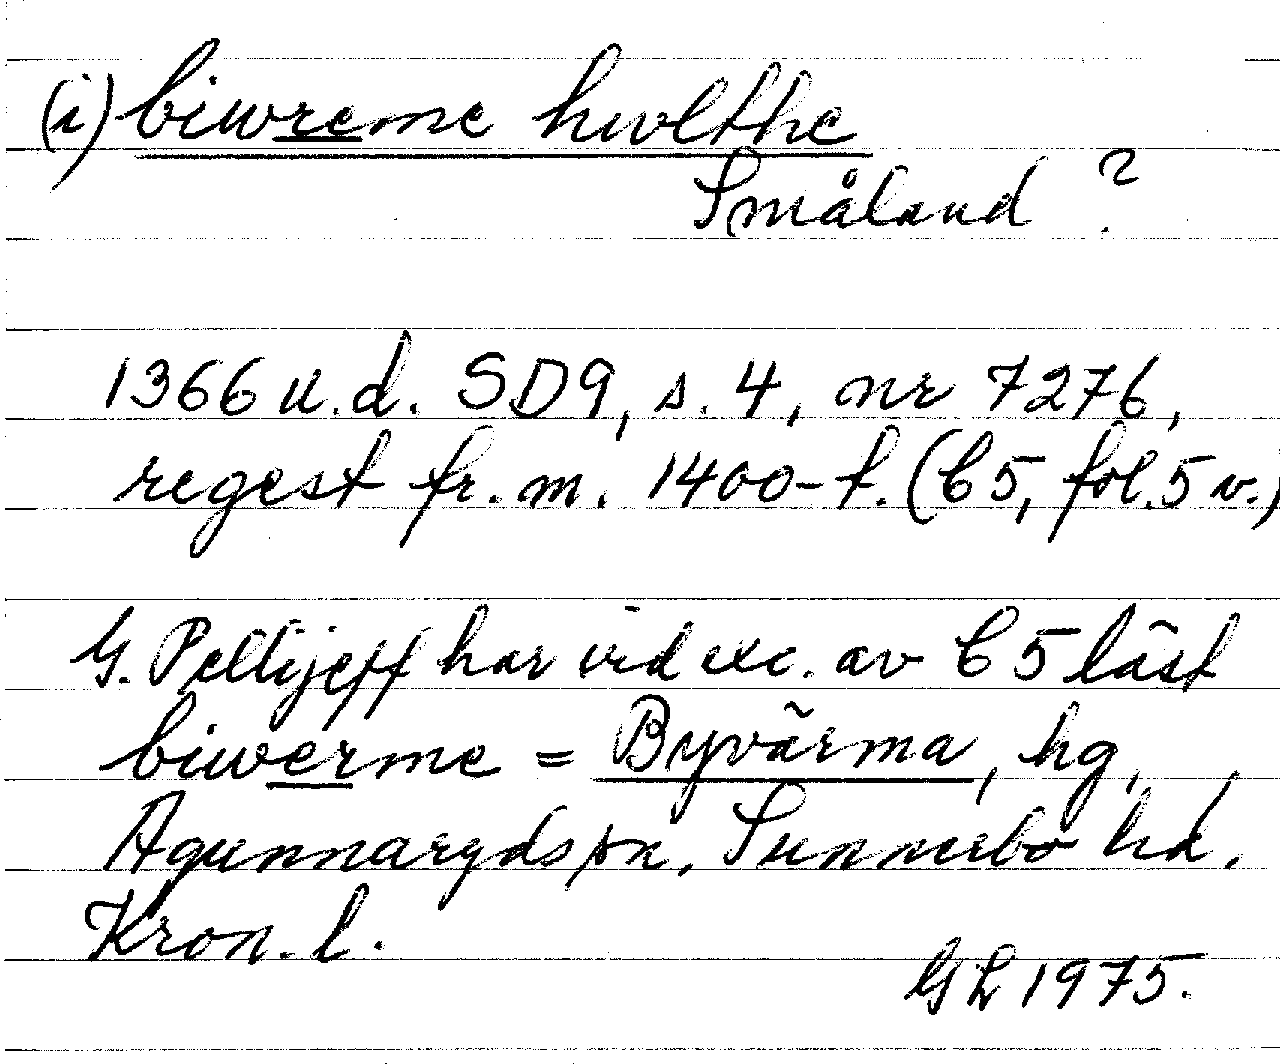 (i) biwreme hwlthe
Småland ?
1366 u.d. SD9, s. 4, nr 7276,
regest fr. m. 1400-t. (C5, fol. 5 v.)
G. Pellijeff har vid exc. av C5 läst
biwerme = Byvärma, hg,
Agunnaryds sn, Sunnerbo hd,
Kron. l.
GL 1975.